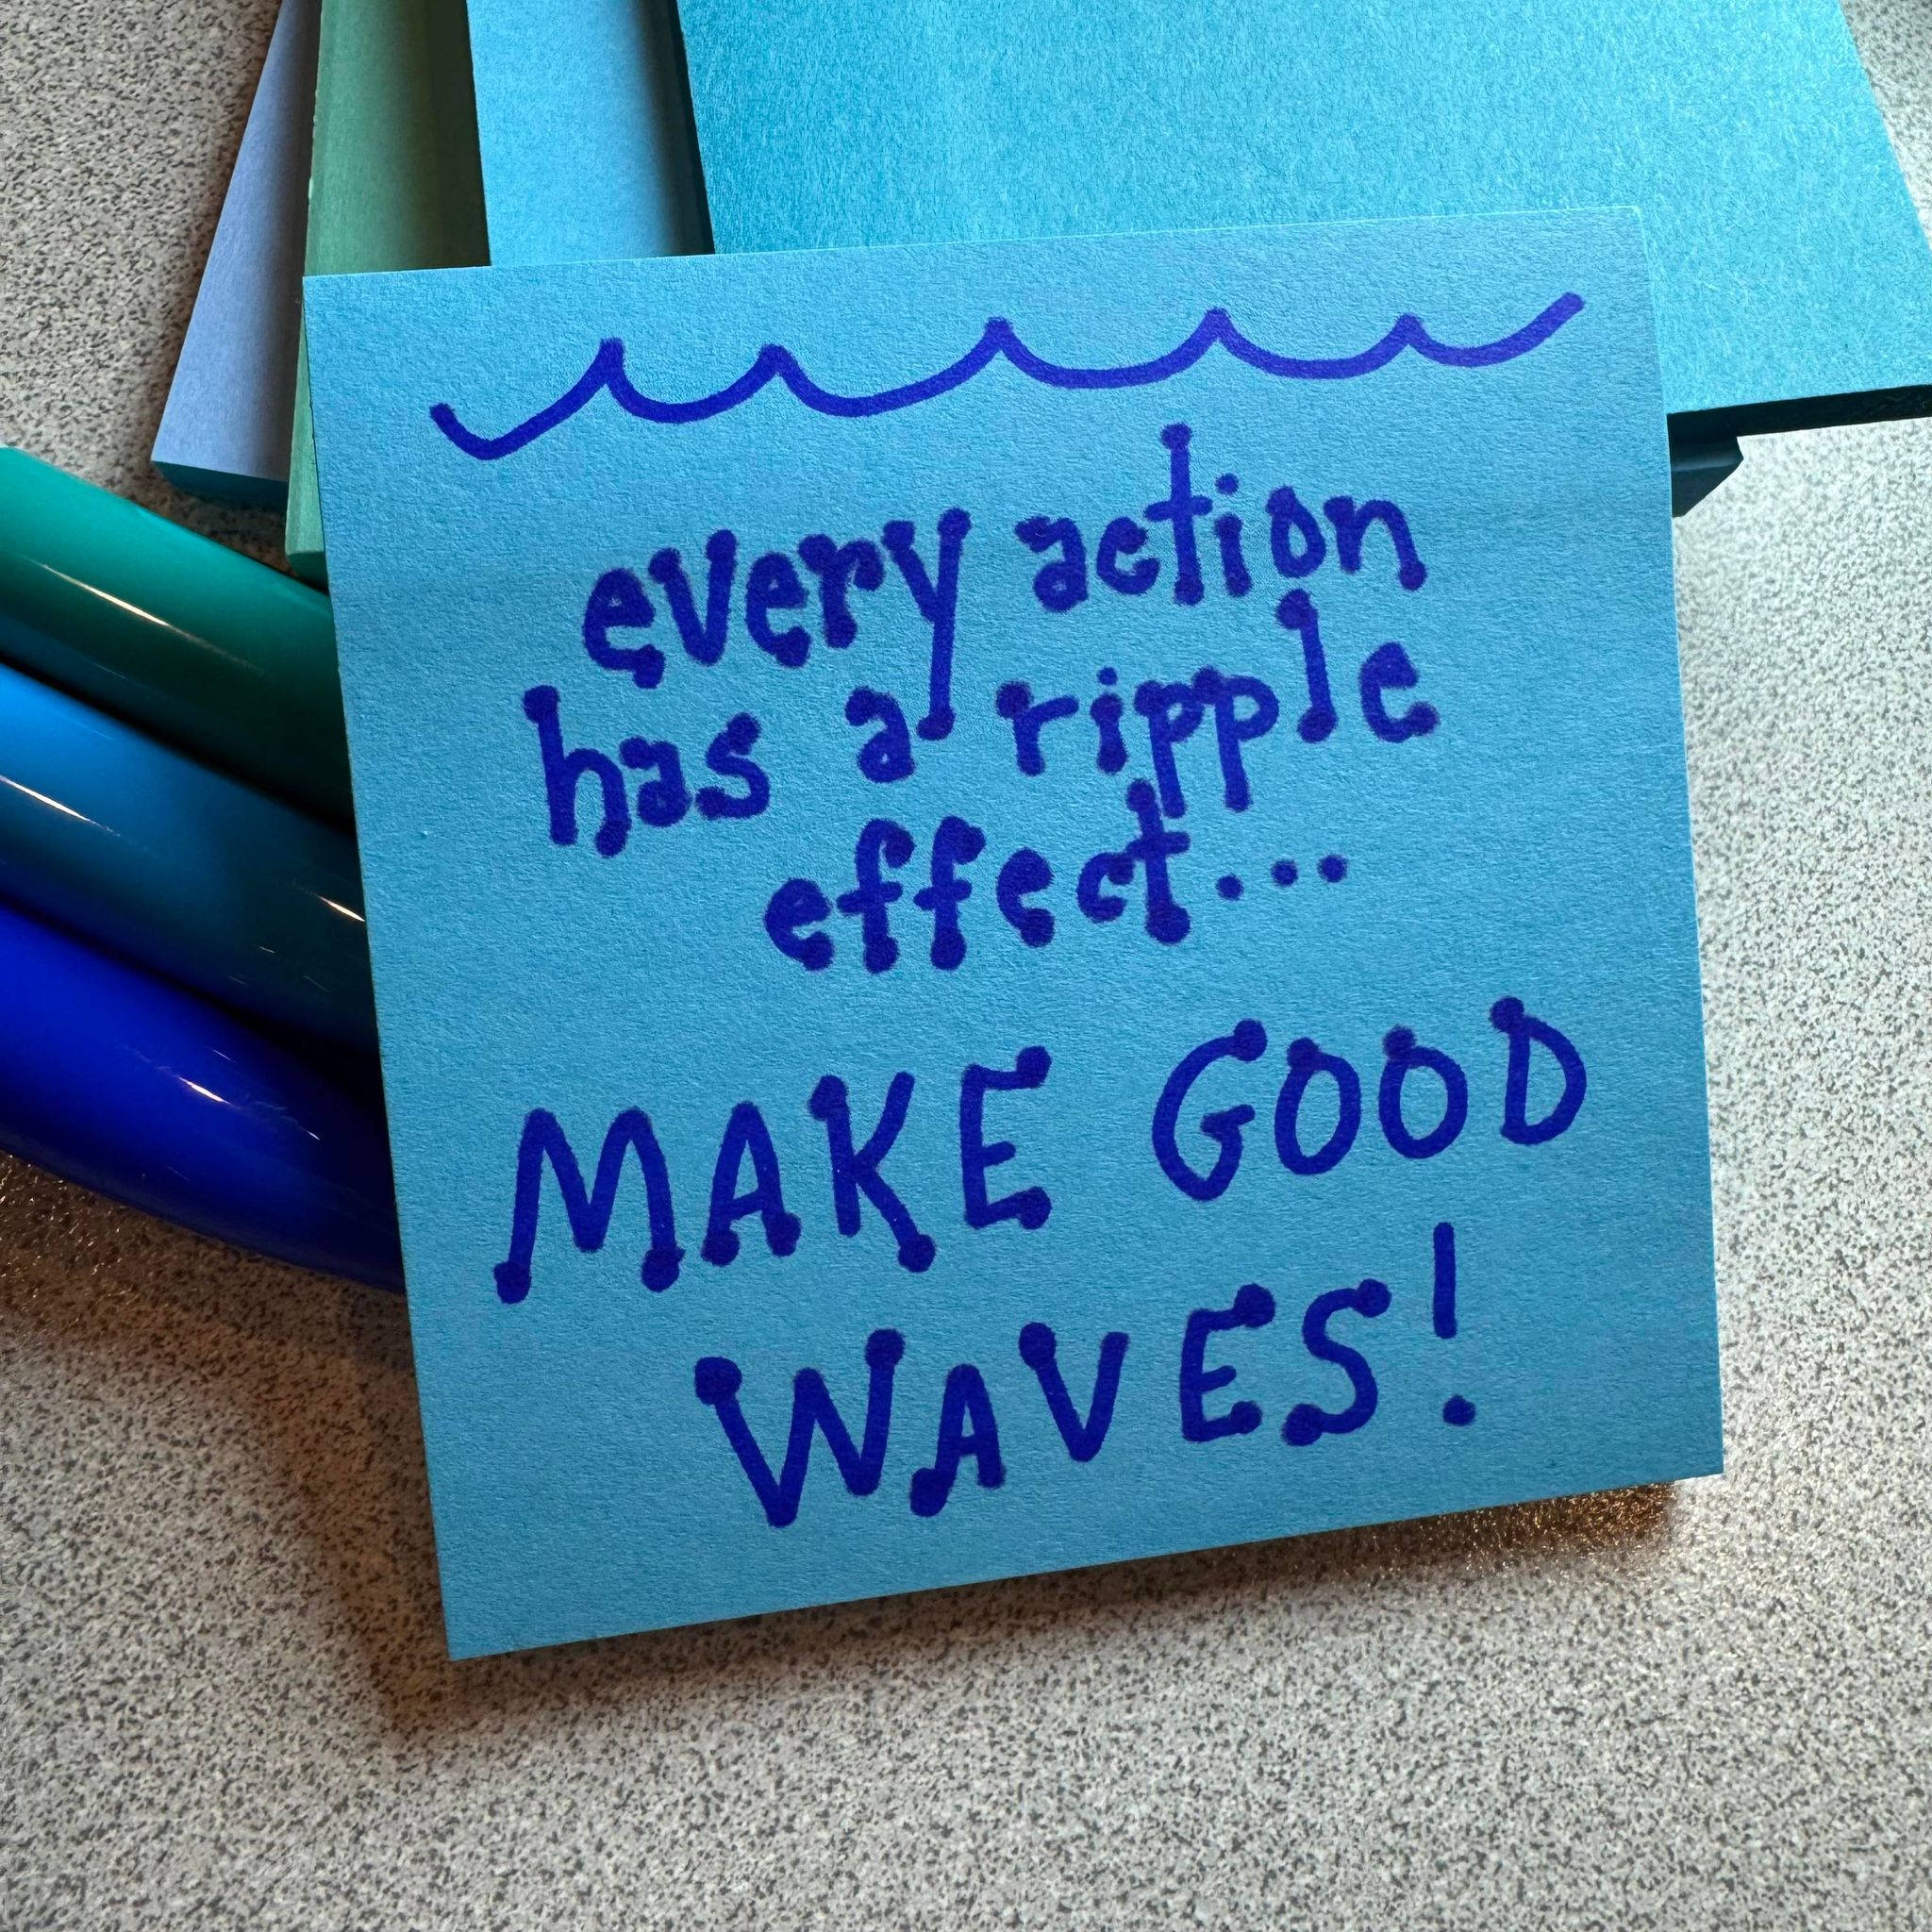 every action
has a ripple
effect...
MAKE GOOD
WAVES!